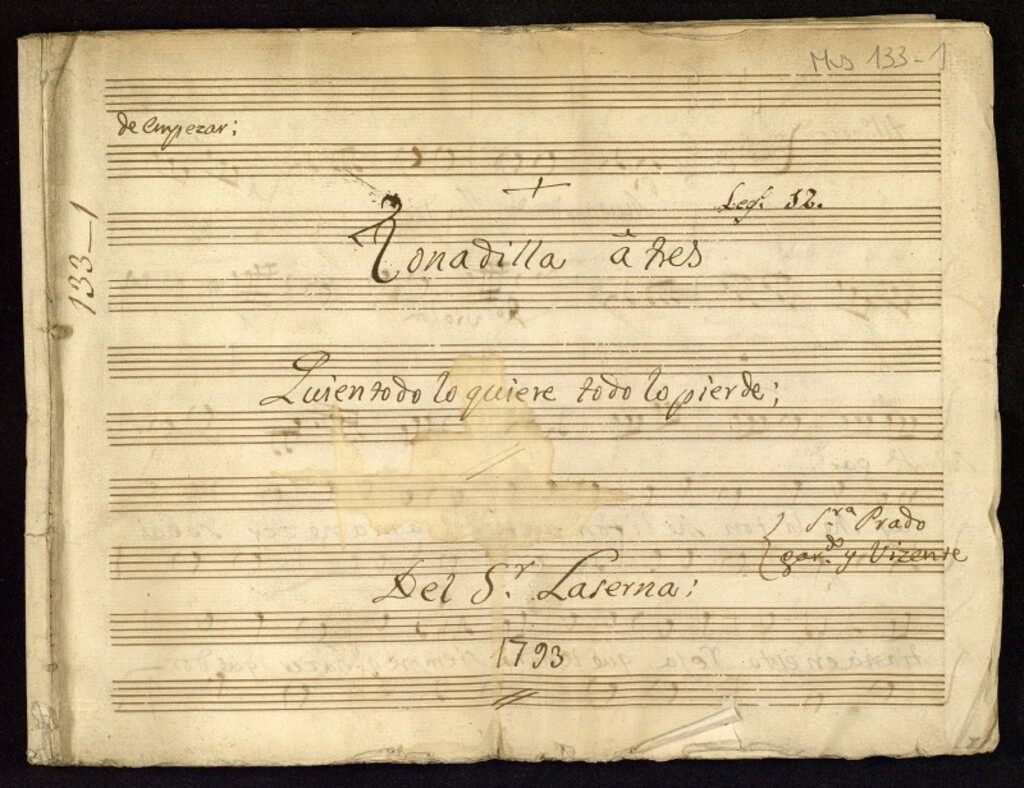 Mus 133-1
de empezar;
133-1
Legº. 12.
Tonadilla â tres
Quien todo lo quiere todo lo pierde;
Sra Prado
Gardo. y Vizente
Del Sr. Laserna;
1793